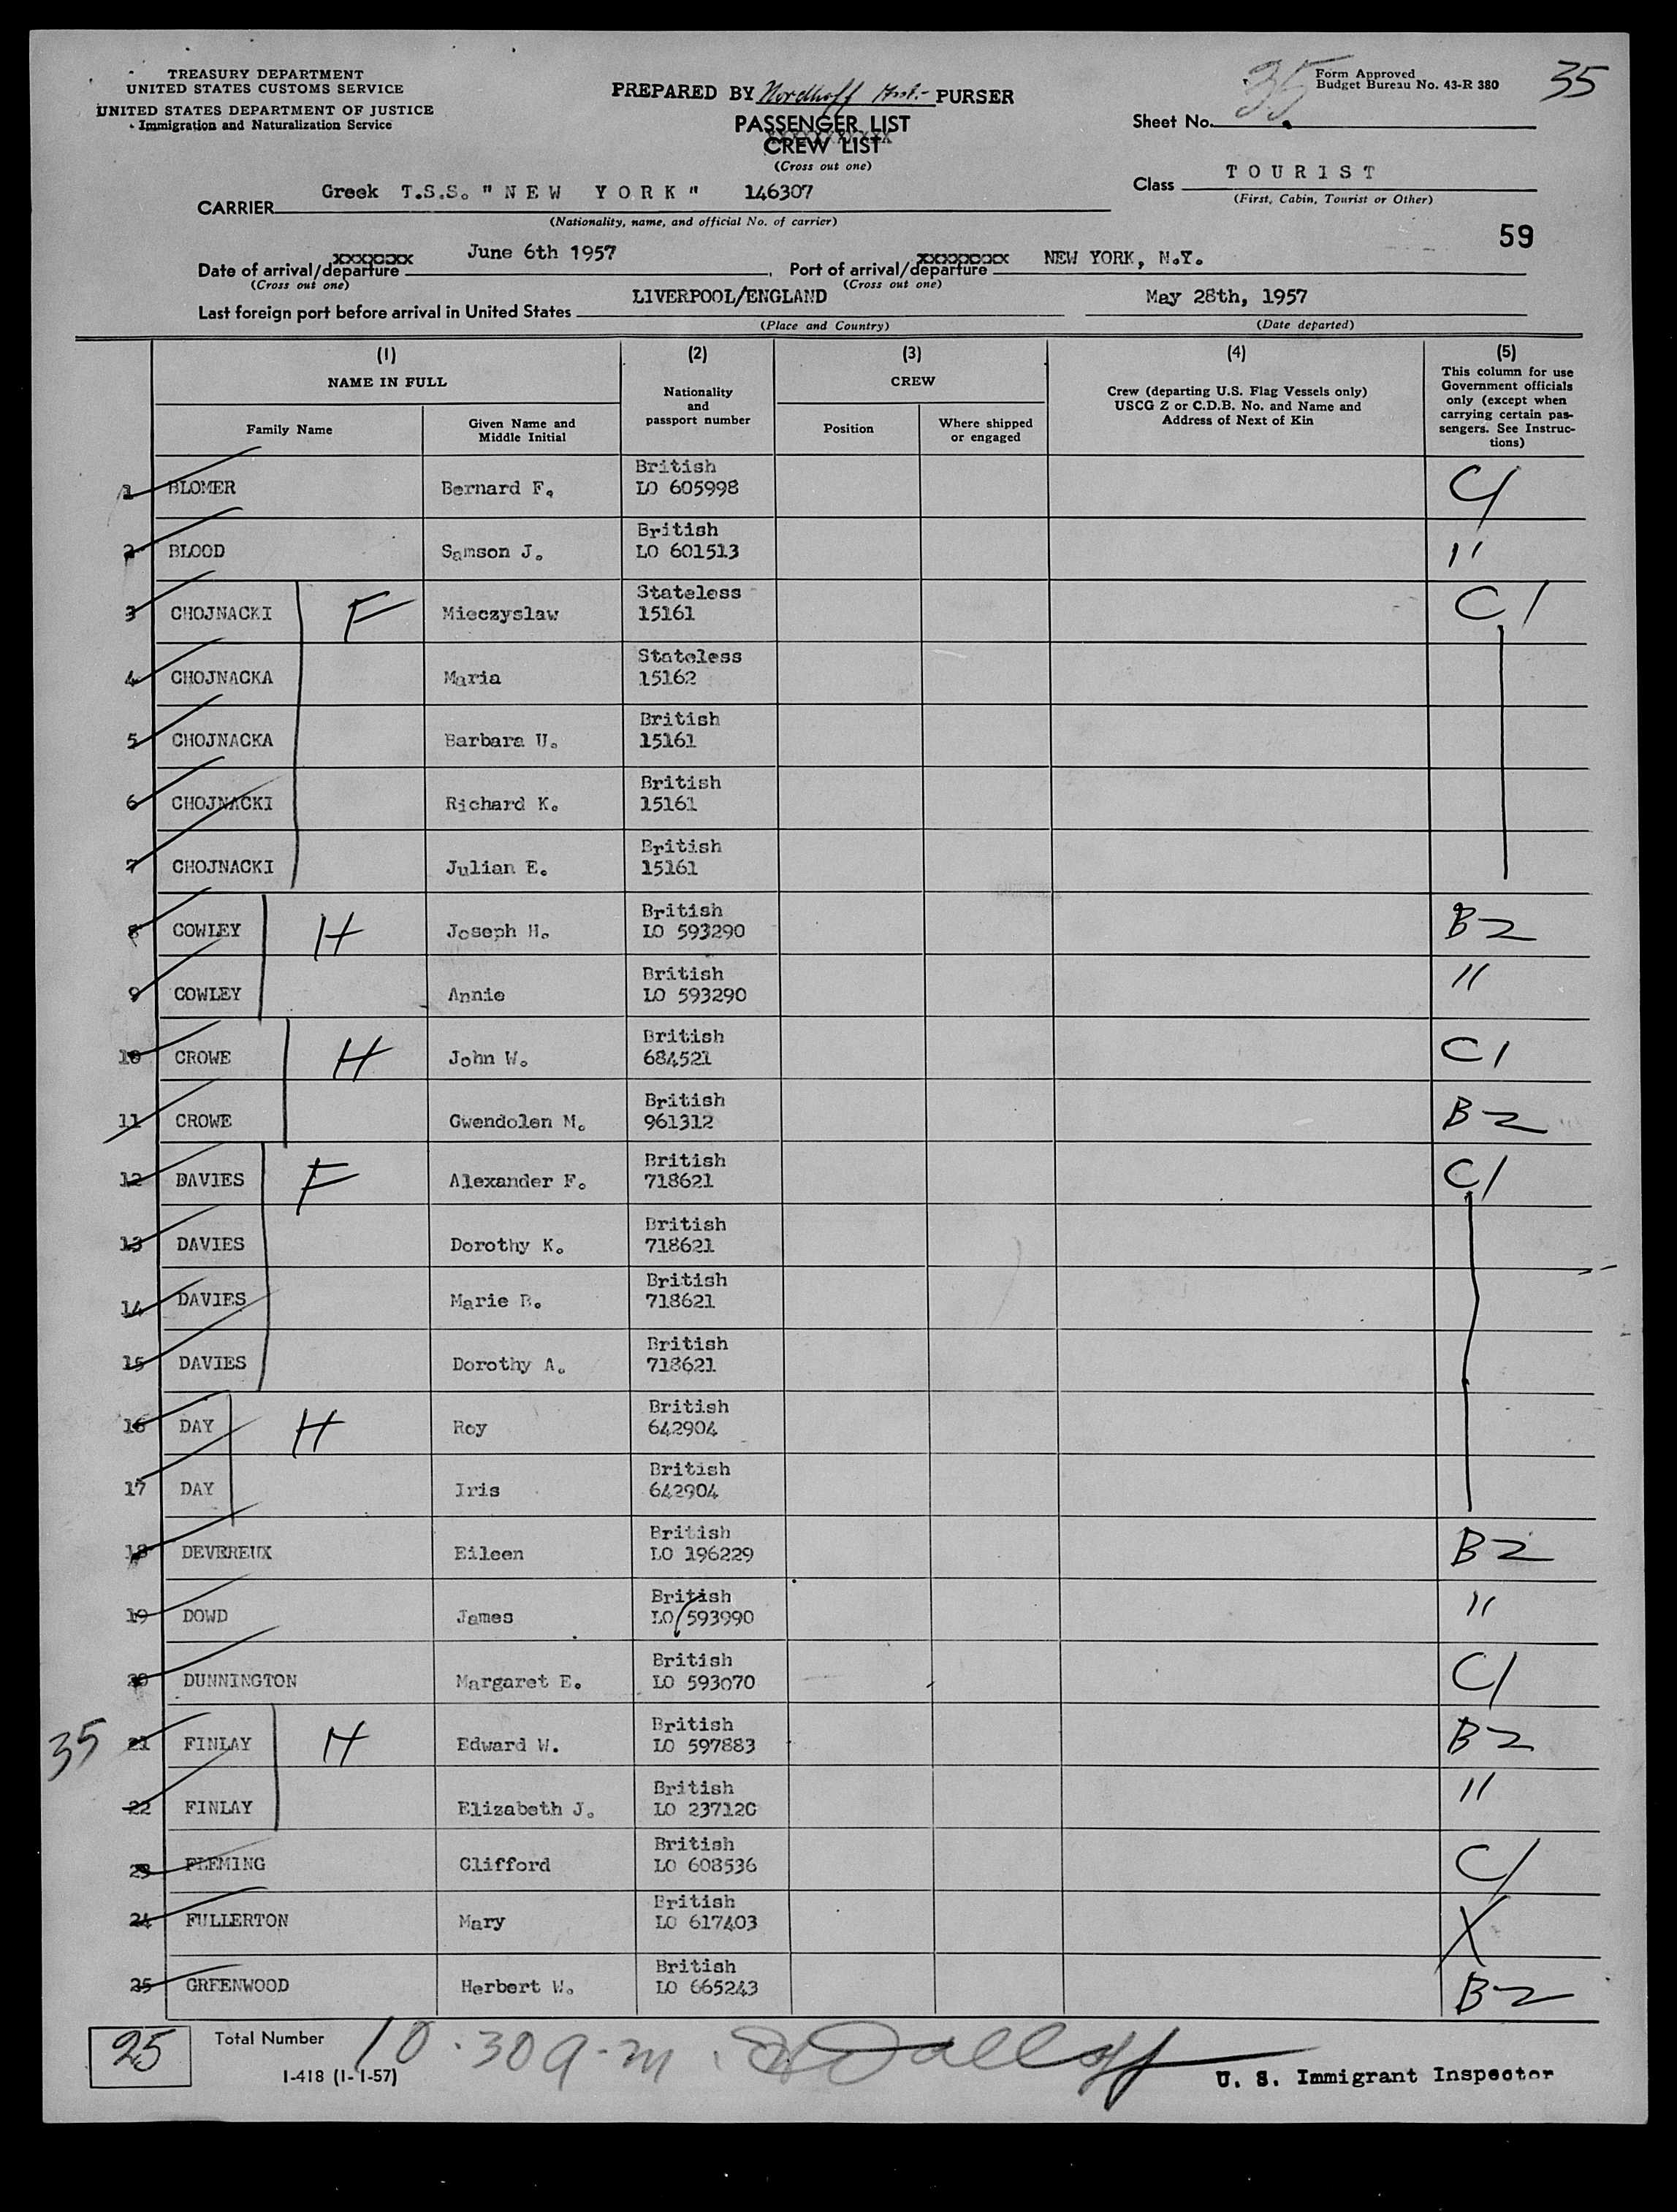 TREASURY DEPARTMENT
UNITED STATES CUSTOMS SERVICE
UNITED STATES DEPARTMENT OF JUSTICE
Immigration and Naturalization Service
PREPARED BY Nordhoff PURSER
PASSENGER LIST
xxxxxxxxxxx
CREW LIST
(Cross out one)
35
Form Approved
Budget Bureau No. 43-R 380
35
Sheet No.
Class TOURIST
(First, Cabin, Tourist or Other)
CARRIER Greek T.S.S. "NEW YORK" 146307
(Nationality, name, and official No. of carrier)
59
Date of arrival/departure June 6th 1957, Port of arrival/departure NEW YORK, N.Y.
(Cross out one) (Cross out one)
Last foreign port before arrival in United States LIVERPOOL/ENGLAND May 28th, 1957
(Place and Country) (Date departed)
(1) (2) (3) (4) (5)
NAME IN FULL
Family Name
Given Name and Middle Initial
Nationality and passport number
CREW
Position
Where shipped or engaged
Crew (departing U.S. Flag Vessels only)
USCG Z or C.D.B. No. and Name and
Address of Next of Kin
This column for use
Government officials
only (except when
carrying certain pas-
sengers. See Instruc-
tions)
1 BLOMER Bernard F. British LO 605998 C1
2 BLOOD Samson J. British LO 601513 "
3 CHOJNACKI F Mieczyslaw Stateless 15161 C1
4 CHOJNACKA Maria Stateless 15162
5 CHOJNACKA Barbara U. British 15161
6 CHOJNACKI Richard K. British 15161
7 CHOJNACKI Julian E. British 15161
8 COWLEY H Joseph H. British LO 593290 B2
9 COWLEY Annie British LO 593290 "
10 CROWE H John W. British 684521 C1
11 CROWE Gwendolen M. British 961312 B2
12 DAVIES F Alexander F. British 718621 C1
13 DAVIES Dorothy K. British 718621
14 DAVIES Marie B. British 718621
15 DAVIES Dorothy A. British 718621
16 DAY H Roy British 642904
17 DAY Iris British 642904
18 DEVEREUX Eileen British LO 196229 B2
19 DOWD James British LO 593990 "
20 DUNNINGTON Margaret E. British LO 593070 C1
35
21 FINLAY H Edward W. British LO 597883 B2
22 FINLAY Elizabeth J. British LO 237120 "
23 FLEMING Clifford British LO 608536 C1
24 FULLERTON Mary British LO 617403 X
25 GREENWOOD Herbert W. British LO 665243 B2
25
Total Number
10.30 a.m.
I-418 (1-1-57)
U. S. Immigrant Inspector